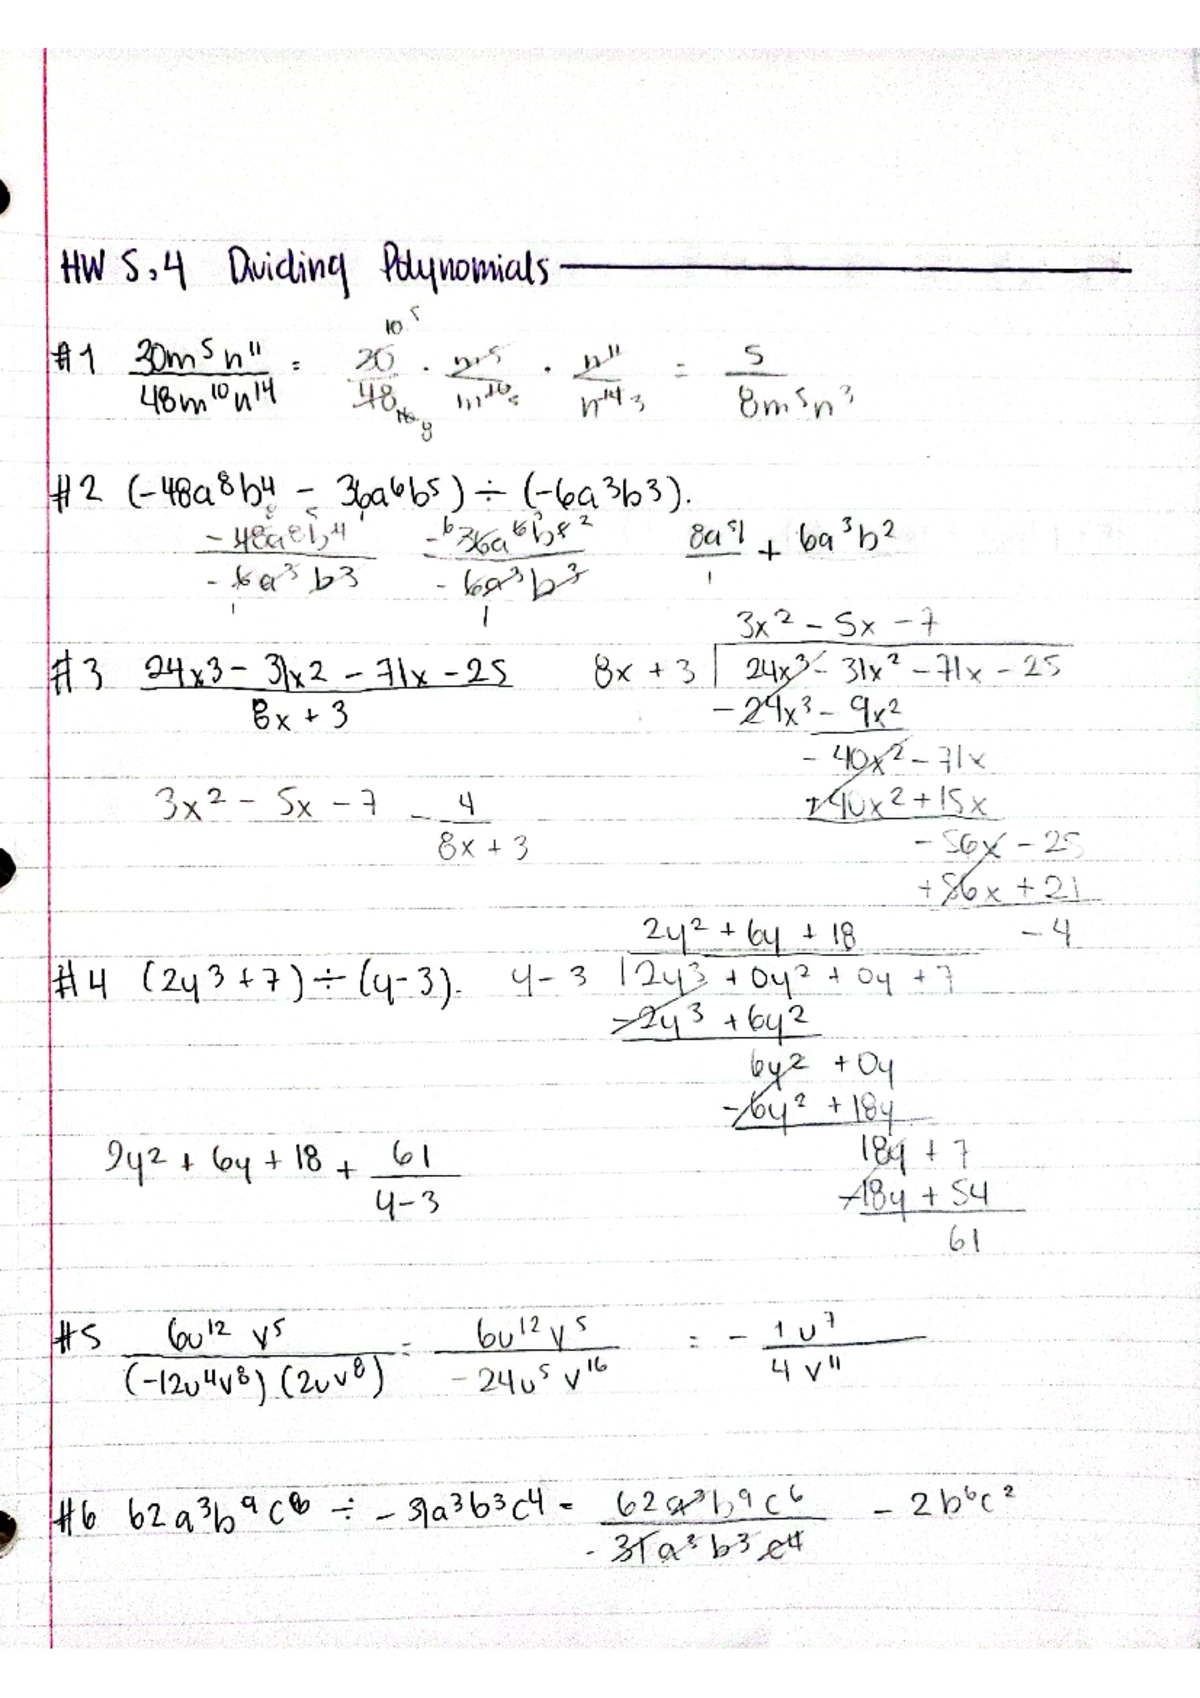 HW 5.4 Dividing Polynomials
#1 30m⁵n¹¹/48m¹⁰n¹⁴ = 30/48 · m⁵/m¹⁰ · n¹¹/n¹⁴ = 5/8m⁵n³
#2 (-48a8b4 - 36a6b5) ÷ (-6a3b3).
-48a8b4/-6a³b3 -36a6b5/-6a³b³ 8a⁵b/1 + 6a³b²
3x² - 5x - 7
#3 24x3 - 31x2 - 71x - 25/8x + 3 8x + 3 24x³ - 31x² - 71x - 25
-24x³ - 9x²
-40x² - 71x
3x² - 5x - 7 - 4/8x + 3 +40x² + 15x
-56x - 25
+56x + 21
2y² + 6y + 18 -4
#4 (2y3 + 7) ÷ (y-3). y-3 2y³ + 0y² + 0y + 7
-2y³ + 6y²
6y² + 0y
-6y² + 18y
2y² + 6y + 18 + 61/y-3 18y + 7
-18y + 54
61
#5 6u¹² v⁵/(-12u⁴v⁸)(2uv⁸) = 6u¹²v⁵/-24u⁵v¹⁶ = - 1u⁷/4v¹¹
#6 62a³b⁹c⁶ ÷ -31a³b³c4 = 62a³b⁹c⁶/-31a³b³c⁴ -2b⁶c²